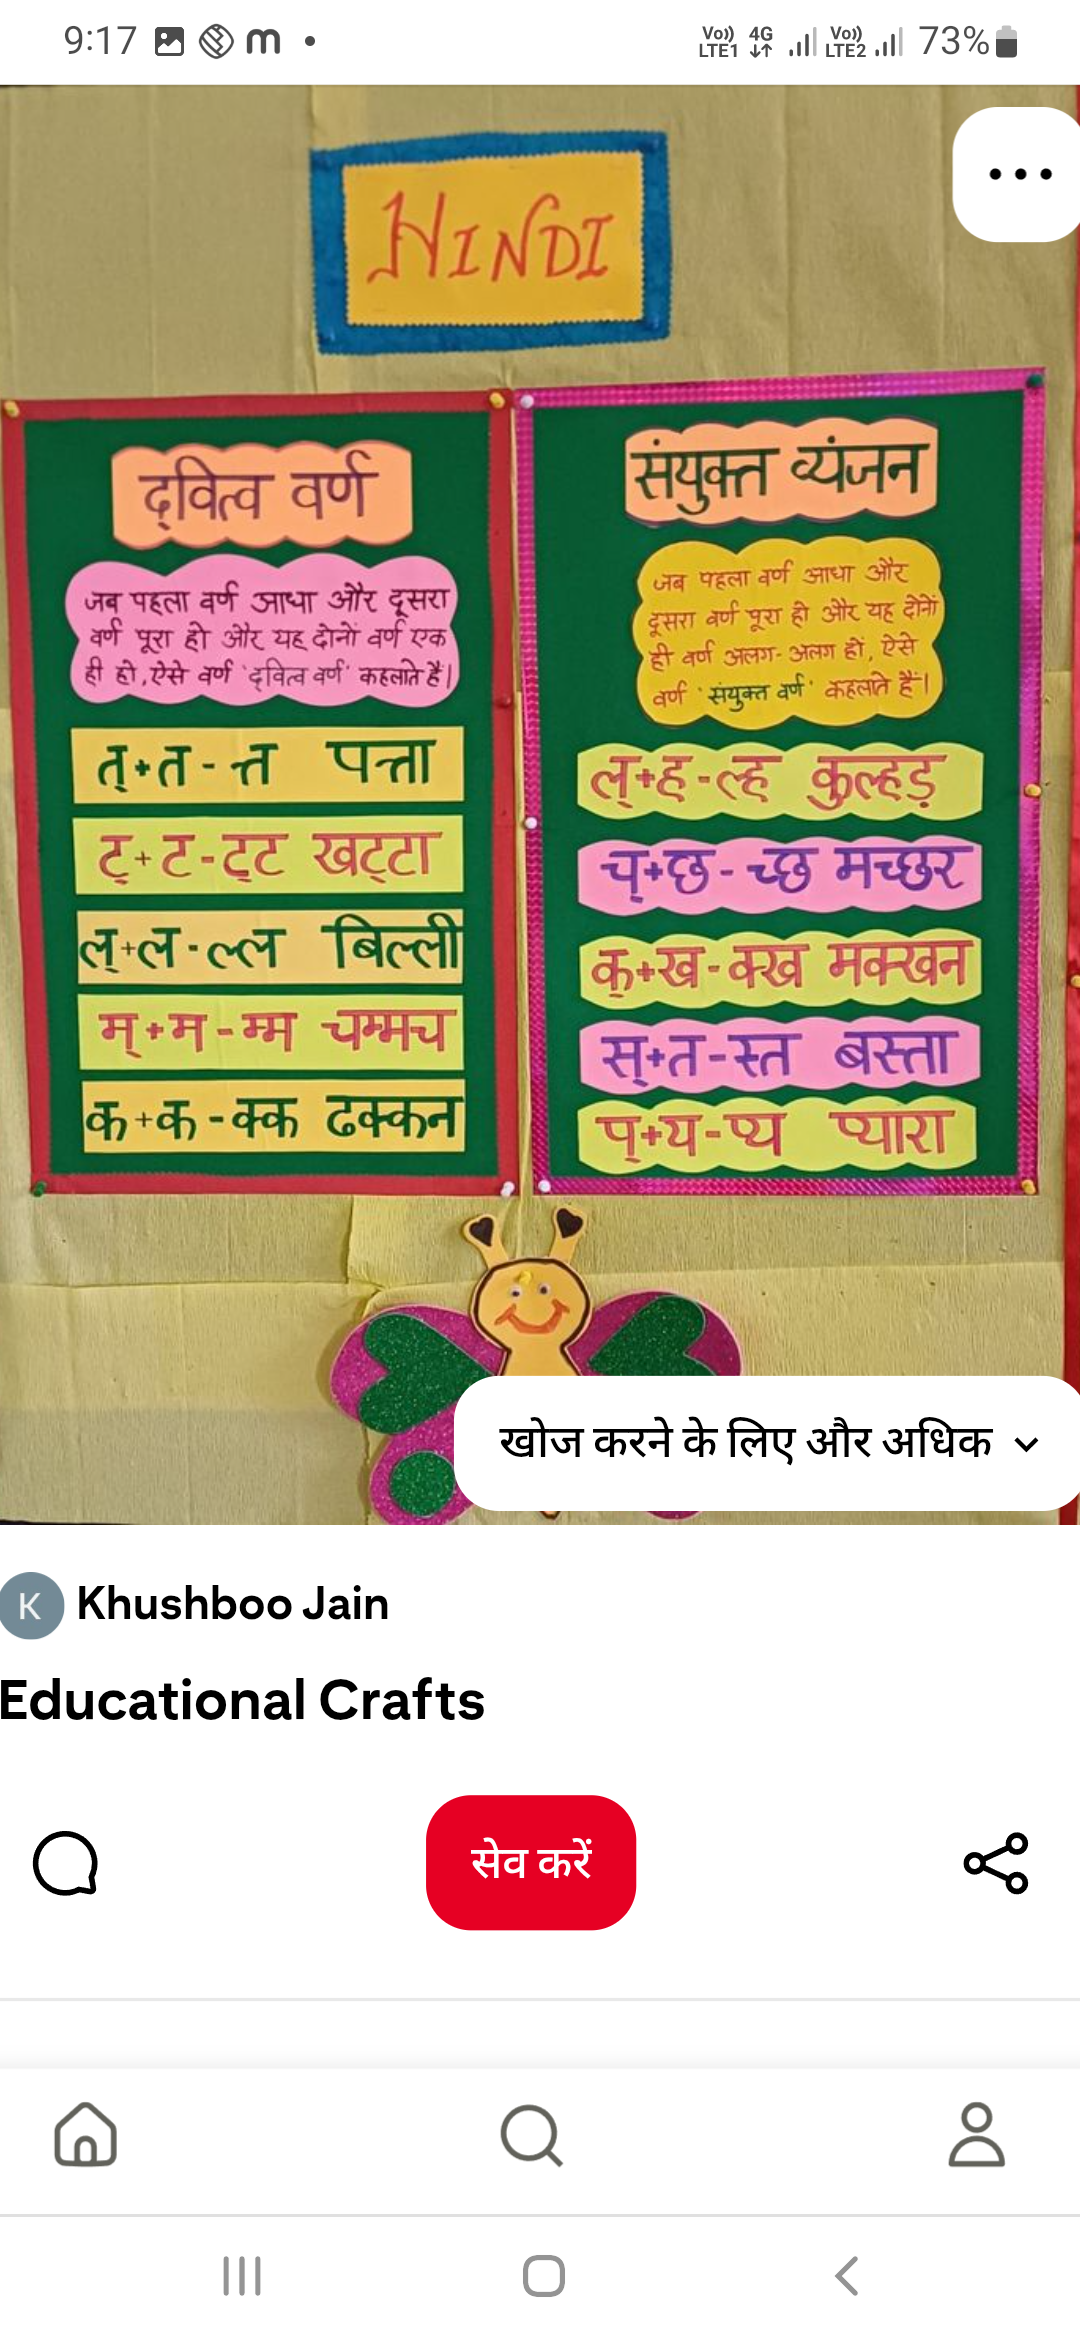 9:17 m
Vo)) LTE1 4G Vo)) LTE2 73%
HINDI
द्वित्व वर्ण
जब पहला वर्ण आधा और दूसरा
वर्ण पूरा हो और यह दोनों वर्ण एक
ही हो, ऐसे वर्ण 'द्वित्व वर्ण' कहलाते हैं।
त्+त - त्त पत्ता
ट्+ट - ट्ट खट्टा
ल्+ल - ल्ल बिल्ली
म्+म - म्म चम्मच
क+क - क्क ढक्कन
संयुक्त व्यंजन
जब पहला वर्ण आधा और
दूसरा वर्ण पूरा हो और यह दोनों
ही वर्ण अलग-अलग हों, ऐसे
वर्ण 'संयुक्त वर्ण' कहलाते हैं।
ल्+ह - ल्ह कुल्हड़
च्+छ - च्छ मच्छर
क्+ख - क्ख मक्खन
स्+त - स्त बस्ता
प्+य - प्य प्यारा
खोज करने के लिए और अधिक
K Khushboo Jain
Educational Crafts
सेव करें